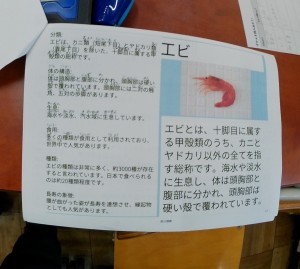 分類
エビは、カニ類（短尾下目）とヤドカリ類
（異尾下目）を除いた、十脚目に属する甲
殻類の総称です。
体の構造
体は頭胸部と腹部に分かれ、頭胸部は硬い
殻で覆われています。頭胸部には二対の触
角、五対の歩脚があります。
生息
海水や淡水、汽水域に生息しています。
食用
多くの種類が食用として利用されており、
世界中で人気があります。
種類
エビの種類は非常に多く、約3000種が存在
すると言われています。日本で食べられる
のは約20種類程度です。
長寿の象徴
腰が曲がった姿が長寿を連想させ、縁起物
としても人気があります。
エビ
エビとは、十脚目に属す
る甲殻類のうち、カニと
ヤドカリ以外の全てを指
す総称です。海水や淡水
に生息し、体は頭胸部と
腹部に分かれ、頭胸部は
硬い殻で覆われています。